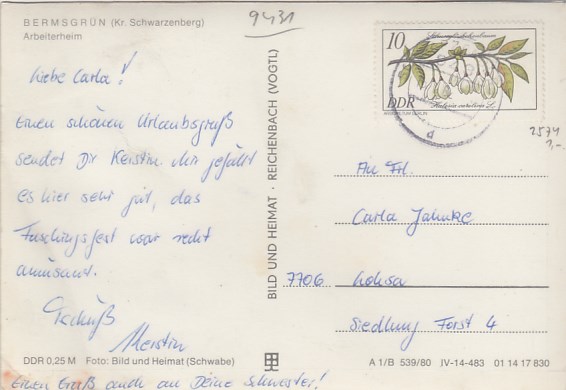 BERMSGRÜN (Kr. Schwarzenberg)
Arbeiterheim
Liebe Carla!
Einen schönen Urlaubsgruß
sendet Dir Kerstin. Mir gefällt
es hier sehr gut, das
Faschingsfest war recht
amüsant.
Tschüß
Kerstin
Einen Gruß auch an Deine Schwester!
DDR 0,25 M Foto: Bild und Heimat (Schwabe)
BILD UND HEIMAT · REICHENBACH (VOGTL)
9431
10
DDR
Halesia carolina L.
2574
An Frl.
Carla Jahnke
7706 Lohsa
Siedlung Forst 4
A 1/B 539/80 IV-14-483 01 14 17 830